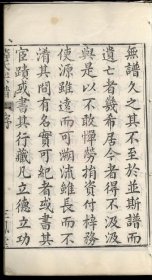 無譜久之其不至於並斯譜而
遺亡者幾希居今者得不汲汲
與是以不敢憚勞捐資付梓務
使源雖遠而可溯流雖長而不
淆其間有名實可紀者或書其
宦蹟或書其行藏凡立德立功